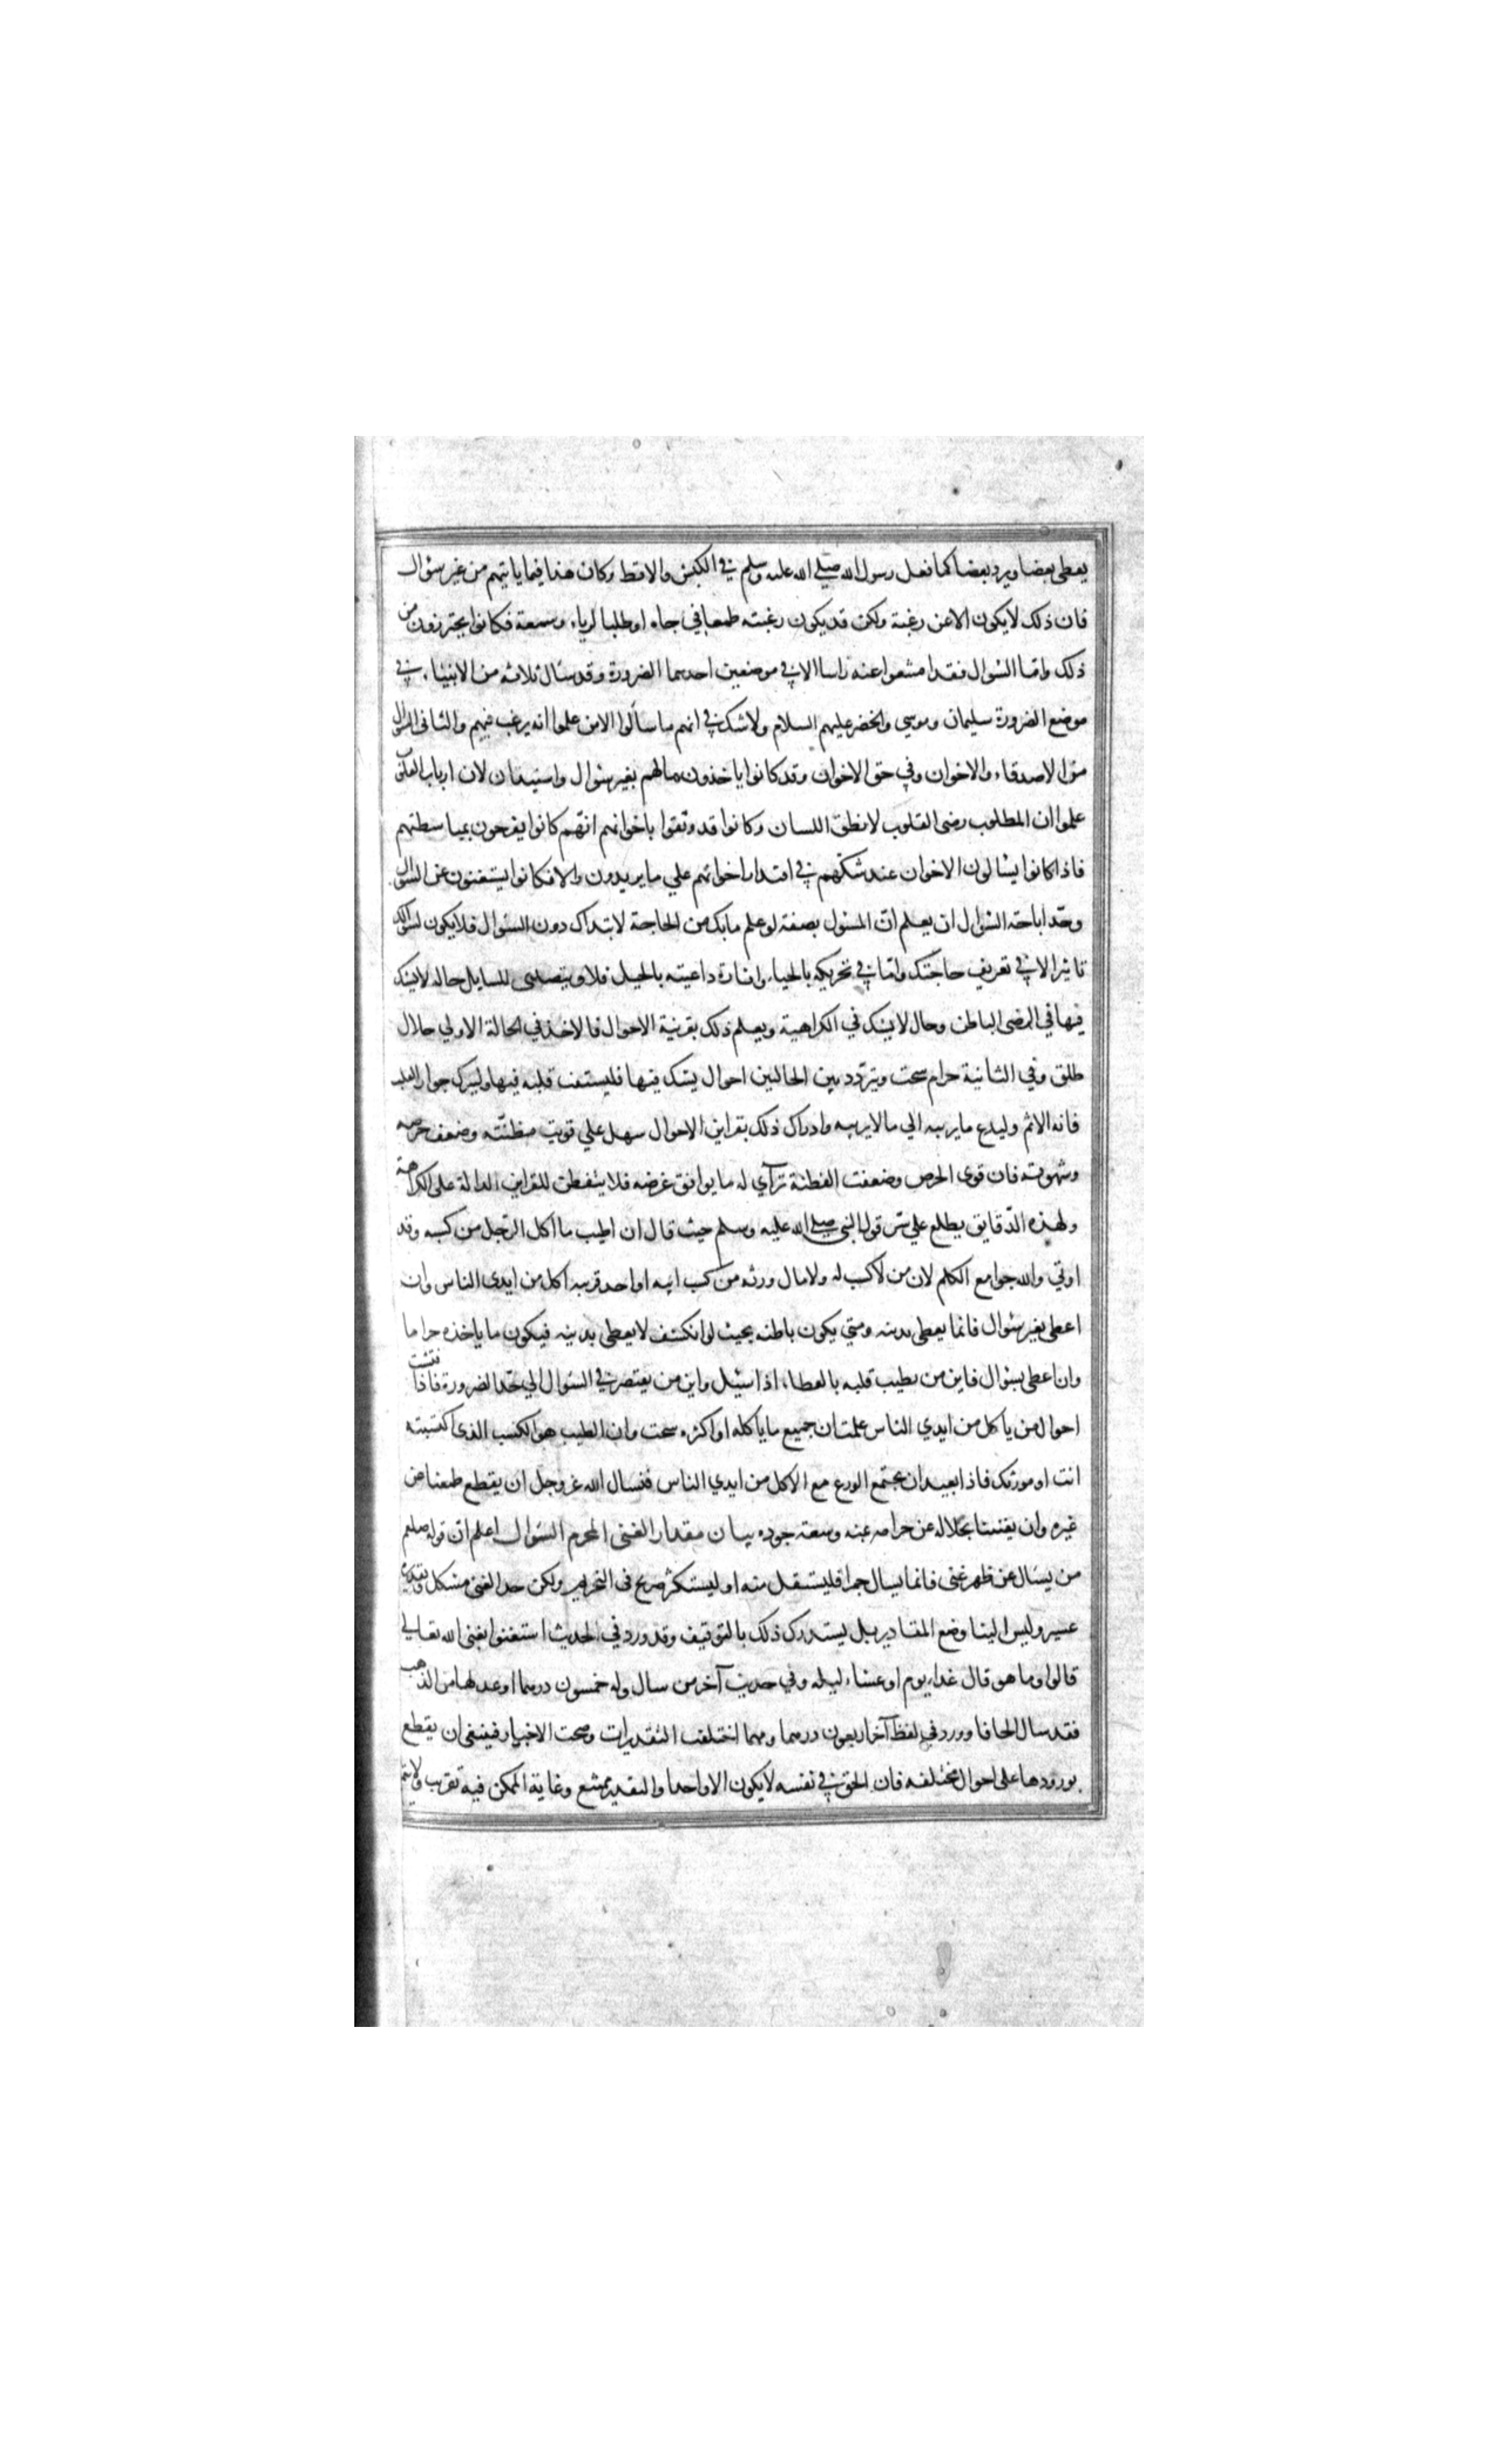 يعطى بعضا ويرد بعضا كما فعل رسول الله صلى الله عليه وسلم في الكبش والاقط وكان هذا فيما ياتيهم من غير سؤال
فان ذلك لا يكون الا عن رغبة ولكن قد يكون رغبته طمعا في جاه او طلبا لرياء وسمعة فكانوا يحترزون من
ذلك واما السؤال فقد امتنعوا عنه راسا الا في موضعين احدهما الضرورة وقد سال ثلاثة من الانبياء في
موضع الضرورة سليمان وموسي والخضر عليهم السلام ولا شك في انهم ما سألوا الا من علموا انه يرغب فيهم والثاني السؤال
من الاصدقاء والاخوان وفي حق الاخوان وقد كانوا ياخذون مالهم بغير سؤال واستيذان لان ارباب القلوب
علموا ان المطلوب رضى القلوب لا نطق اللسان وكانوا قد وثقوا باخوانهم انهم كانوا يفرحون بمباسطتهم
فاذا كانوا يسالون الاخوان عند شكهم في اقتدار اخوانهم علي ما يريدون والا فكانوا يستغنون عن السؤال
وحد اباحة السؤال ان يعلم ان المسئول بصفة لو علم مابك من الحاجة لابتداك دون السؤال فلا يكون لسؤالك
تاثير الا في تعريف حاجتك واما في تحريكه بالحياء واثارة داعيته بالحيل فلا ويتصدى للسايل حاله لا يشك
فيها في الرضى الباطن وحال لا يشك في الكراهية ويعلم ذلك بقرينة الاحوال فالاخذ في الحالة الاولي حلال
طلق وفي الثانية حرام سحت ويتردد بين الحالين احوال يشك فيها فليستفت قلبه فيها وليترك جواز القلب
فانه الاثم وليدع ما يريبه الي ما لا يريبه وادراك ذلك بقراين الاحوال سهل علي قويت فطنته وضعف حرصه
وشهوته فان قوى الحرص وضعفت الفطنة ترآي له ما يوافق غرضه فلا يتفطن للقراين الدالة على الكراهة
ولهذه الدقايق يطلع علي سر قول النبي صلى الله عليه وسلم حيث قال ان اطيب ما اكل الرجل من كسبه وقد
اوتي والله جوامع الكلم لان من لا كسب له ولا مال ورثه من كسب ابيه او احد قريبه اكل من ايدي الناس وان
اعطى بغير سؤال فانما يعطى بدينه ومتي يكون باطنه بحيث لو انكشف لا يعطى بدينه فيكون ما ياخذه حراما
وان اعطى بسؤال فاين من يطيب قلبه بالعطاء اذا سئل واين من يقتصر في السؤال الي حد الضرورة فاذا فتشت
احوال من ياكل من ايدي الناس علمت ان جميع ما ياكله او اكثره سحت وان الطيب هو الكسب الذى اكتسبته
انت او مورثك فاذا بعيد ان يجتمع الورع مع الاكل من ايدي الناس فنسال الله عز وجل ان يقطع طمعنا من
غيره وان يغنينا بحلاله عن حرامه بمنه وسعة جوده بيان مقدار الغنى المحرم السؤال اعلم ان قوله صلعم
من يسال عن ظهر غنى فانما يسال جمرا فليستقل منه او ليستكثر صريح في التحريم ولكن حد الغنى مشكل وتقديره
عسير وليس الينا وضع المقادير بل يستدرك ذلك بالتوقيف وقد ورد في الحديث استغنوا بغنى الله تعالي
قالوا وما هو قال غداء يوم او عشاء ليلة وفي حديث آخر من سال وله خمسون درهما او عدلها من الذهب
فقد سال الحافا وورد في لفظ آخر اربعون درهما ومهما اختلفت التقديرات وصحت الاخبار فينبغى ان يقطع
بورودها على احوال مختلفه فان الحق في نفسه لا يكون الا واحدا والتقدير ممتنع وغاية الممكن فيه تقريب ولا يتم